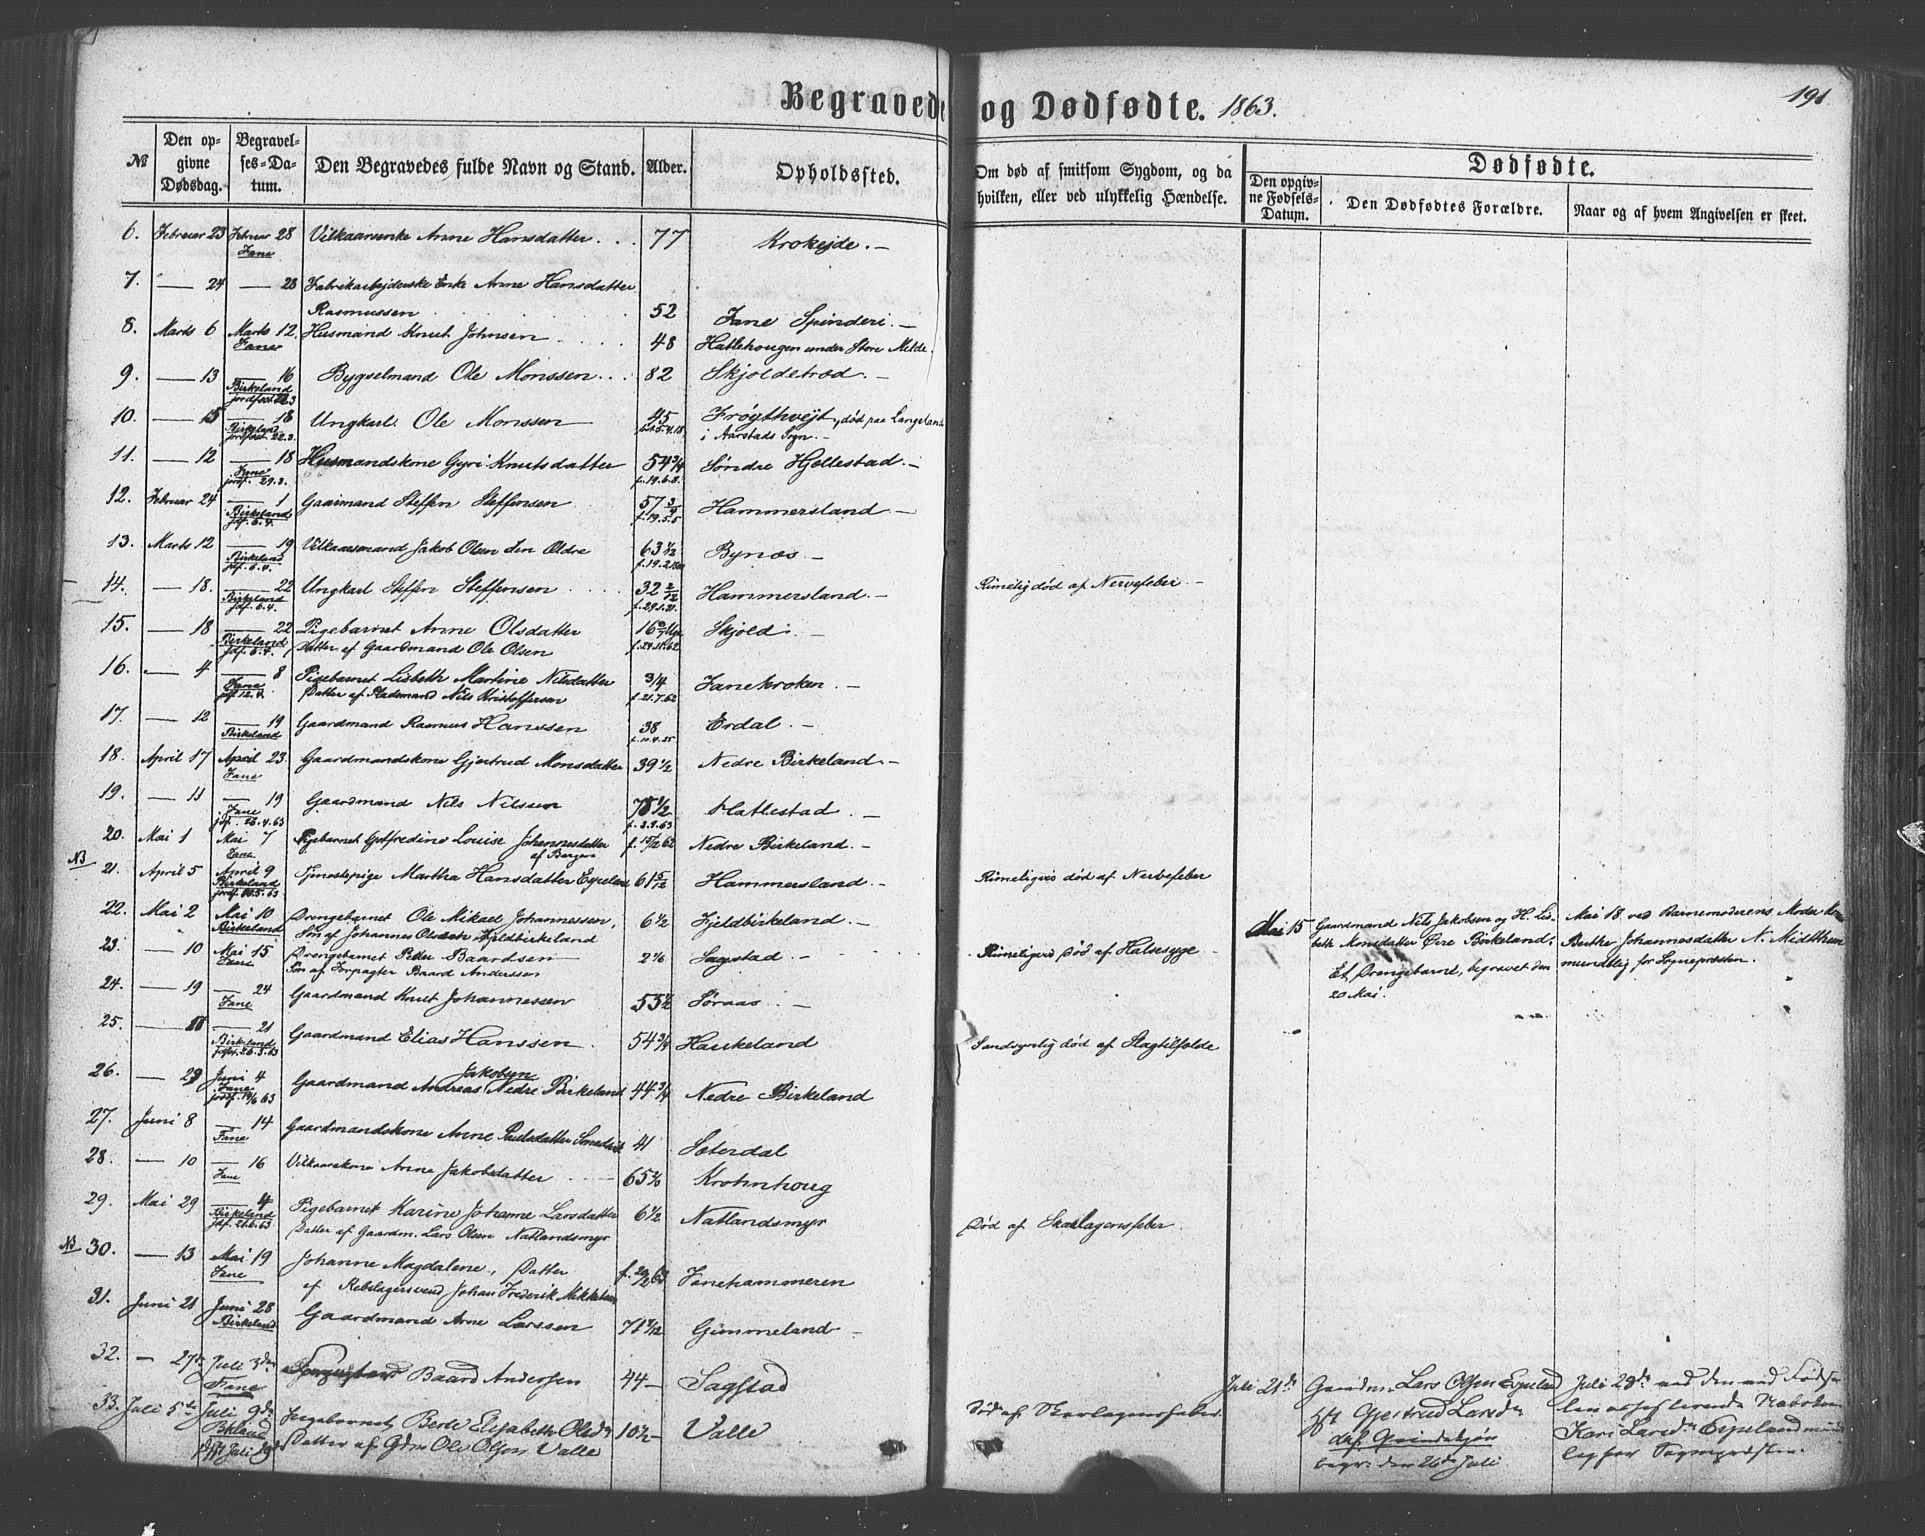 Begravede og Dødfødte. 1863.
191
№
Den opgivne Dødsdag.
Begravelses-Datum.
Den Begravedes fulde Navn og Stand.
Alder.
Opholdssted.
Om død af smitsom Sygdom, og da hvilken, eller ved ulykkelig Hændelse.
Dødfødte.
Den opgivne Fødsels-Datum.
Den Dødfødtes Forældre.
Naar og af hvem Angivelsen er skeet.
6. Februar 23 Februar 28 Vilkaarsenke Anne Hansdatter . . 77 Krokejde. –
Fane
7. — 24 — 28 Fabrikarbejderske Enke Anne Hansdatter
Rasmussen . . . 52 Fane Spinderi. –
8. Marts 6 Marts 12 Husmand Knut Johnsen . . . 48 Hatlehougen under Store Milde.
Fane
9. — 13 — 16 Bygselmand Ole Monssen . . . 82 Skjoldetræd. –
Birkeland
10. — 15 — 18 Ungkarl Ole Monssen — 45 Frøythvejt, død paa Langeland
Birkeland jordfæst. 22.3. i Aarstads Sogn. –
11. — 12 — 18 Husmandskone Gyri Knutsdatter 54 3/4 Søndre Hjellestad. –
Fane jordf. 29.3. f. 19.6.8.
12. Februar 24 — 1 Gaarmand Steffen Steffensen 57 3/4 Hammersland –
Birkeland jdf. 6.4. f. 19.5.5
13. Marts 12 — 19 Vilkaarsmand Jakob Olsen den Ældre 63 1/2 Bynæs –
Birkeland jdf. 6.4.
14. — 18. — 22 Ungkarl Steffen Steffensen . . . 32 2/12 Hammersland. – Rimelig død af Nervefeber –
Birkeland jdf. 6.4. f. 29.1.31.
15. — 18 — 22 Pigebarnet Anne Olsdatter Skjold. –
Birkeland jdf. 6.4. Datter af Gaardmand Ole Olsen
16. — 4 — 8 Pigebarnet Lisbeth Martine Nilsdatter 3/4 Fanekroken. –
Fane jdf. 12.4. Datter af Pladsmand Nils Kristoffersen f. 21.7.62
17. — 12 — 19 Gaardmand Rasmus Hanssen 38 Erdal. –
Birkeland f. 10.4.25
18. April 17 April 23 Gaardmandskone Gjertrud Monsdatter 39 1/2 Nedre Birkeland –
Fane
19. — 11 — 19 Gaardmand Nils Nilssen Hatlestad. –
Fane jdf. 26.4.63
20. Mai 1 Mai 7 Pigebarnet Gotfredine Louise Johannesdatter f. 15/2 62 Nedre Birkeland. –
Fane af Bergen
NB
21. April 5 April 9 Tjenestepige Martha Hansdatter Espeland 61 5/12 Hammersland. – Rimeligvis død af Nervefeber
Birkeland
22. Mai 2 Mai 10 Drengebarnet Ole Mikael Johannessen, 6 1/2 Fjeldbirkeland. –
Birkeland Søn af Johannes Olsen Fjeldbirkeland
Mai 15 Gaardmand Nils Jakobsen og H. Lis- Mai 18 ved Barnemoderens Moder
beth Monsdatter Øvre Birkeland. Berthe Johannesdatter N. Midtthun
Et Drengebarn, begravet den mundtlig for Sognepræsten.
20 Mai.
23. — 10 Mai 15 Drengebarnet Peder Baardsen Sagstad. – Rimeligvis død af Halssyge –
Fane Søn af Forpagter Baard Anderssen
24. — 19 — 24 Gaardmand Knut Johannessen 53 1/2 Søraas. –
Fane
25. — — 21 Gaardmand Elias Hanssen . 54 3/4 Haukeland Sandsynlig død af Slagtilfælde
Birkeland
26. — 29 Juni 4 Gaardmand Andreas Jakobsen Nedre Birkeland 44 3/4 Nedre Birkeland
Fane
27. Juni 8 — 14 Gaardmandskone Anne Paulsdatter 41 Sæterdal
Fane
28. — 10 — 16 Vilkaarskone Anne Jakobsdatter Krohnhoug
Fane
29. Mai 29 — 4 Pigebarnet Karine Johanne Larsdatter 6 1/2 Natlandsmyr Død af Skarlagensfeber.
Birkeland jdf. 21.6.63 Datter af Gaardm. Lars Olsen Natlandsmyr
NB 30. — 13 Mai 19 Johanne Magdalene, Datter Fanehammeren
Fane af Rebslagersvend Johan Frederik Mikkelsen
31. Juni 21 Juni 28 Gaardmand Arne Larssen Gimmeland –
Birkeland
32. — 27de Juli 3die Baard Andersen 44 – Sagstad
Fane
33. Juli 5te Juli 9de Pigebarnet Berte Elisabeth Olsdr 10 1/2 – Valle Død af Skarlagensfeber.
Bkland Datter af Gdm Ole Olsen Valle
Juli 21de Gaardm. Lars Olsen Espeland Juli 28de ved den ved Fødse-
Gjertrud Larsdr
begr. den 26de Juli Kari Larsdr Espeland